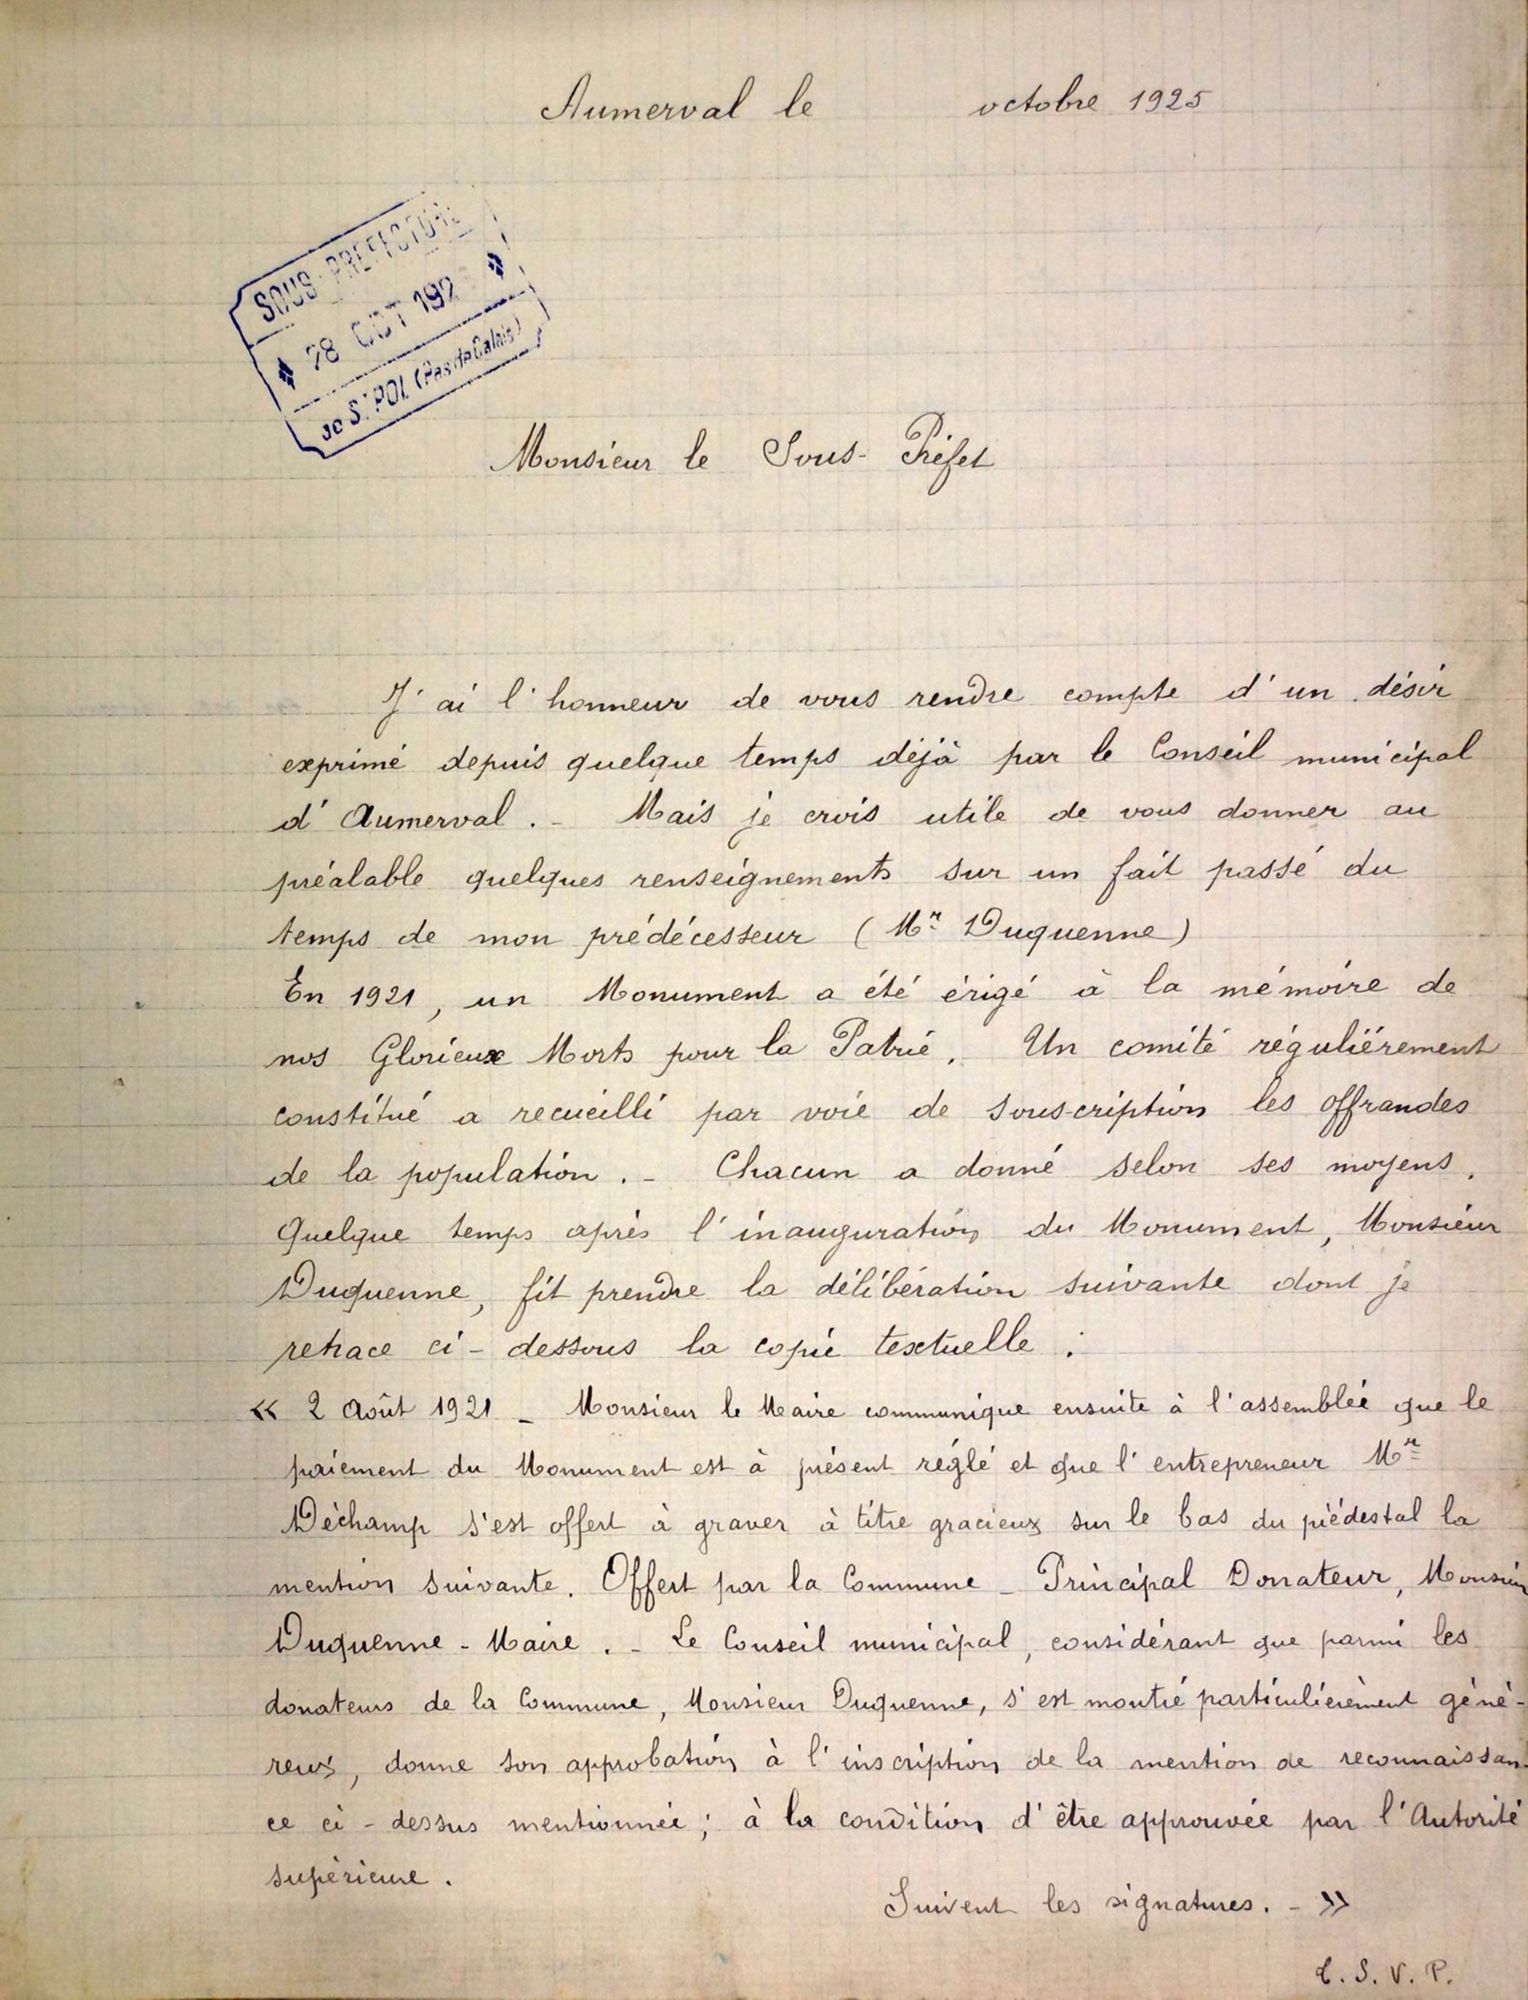 Aumerval le octobre 1925
SOUS-PREFECTURE
28 OCT 192
de St POL (Pas de Calais)
Monsieur le Sous-Préfet
J'ai l'honneur de vous rendre compte d'un désir
exprimé depuis quelque temps déjà par le Conseil municipal
d'Aumerval. - Mais je crois utile de vous donner au
préalable quelques renseignements sur un fait passé du
temps de mon prédécesseur (Mr Duquenne)
En 1921, un Monument a été érigé à la mémoire de
nos Glorieux Morts pour la Patrie. Un comité régulièrement
constitué a recueilli par voie de souscription les offrandes
de la population. - Chacun a donné selon ses moyens.
Quelque temps après l'inauguration du Monument, Monsieur
Duquenne, fit prendre la délibération suivante dont je
retrace ci-dessous la copie textuelle :
« 2 Août 1921 - Monsieur le Maire communique ensuite à l'assemblée que le
paiement du Monument est à présent réglé et que l'entrepreneur Mr
Déchamp s'est offert à graver à titre gracieux sur le bas du piédestal la
mention suivante. Offert par la Commune - Principal Donateur, Monsieur
Duquenne - Maire. - Le Conseil municipal, considérant que parmi les
donateurs de la Commune, Monsieur Duquenne, s'est montré particulièrement géné-
reux, donne son approbation à l'inscription de la mention de reconnaissan-
ce ci-dessus mentionnée ; à la condition d'être approuvée par l'Autorité
supérieure.
Suivent les signatures. - »
T.S.V.P.